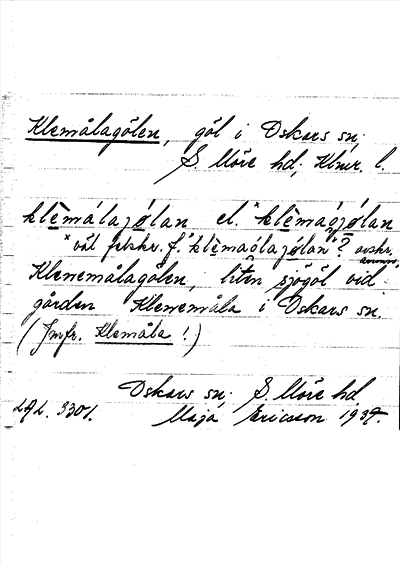 Klemålagölen, göl i Oskars sn;
S. Möre hd; Klmr. l.
klèmálajǿlan el. *klèmaójǿlan
*väl felskr. f. "klèmaólajǿlan"? avskr.
Klenemålagölen, liten sjögöl vid
gården Klenemåla i Oskars sn.
(Jmfr. Klemåla!)
Oskars sn; S. Möre hd.
LAL. 3301. Maja Ericsson 1937.